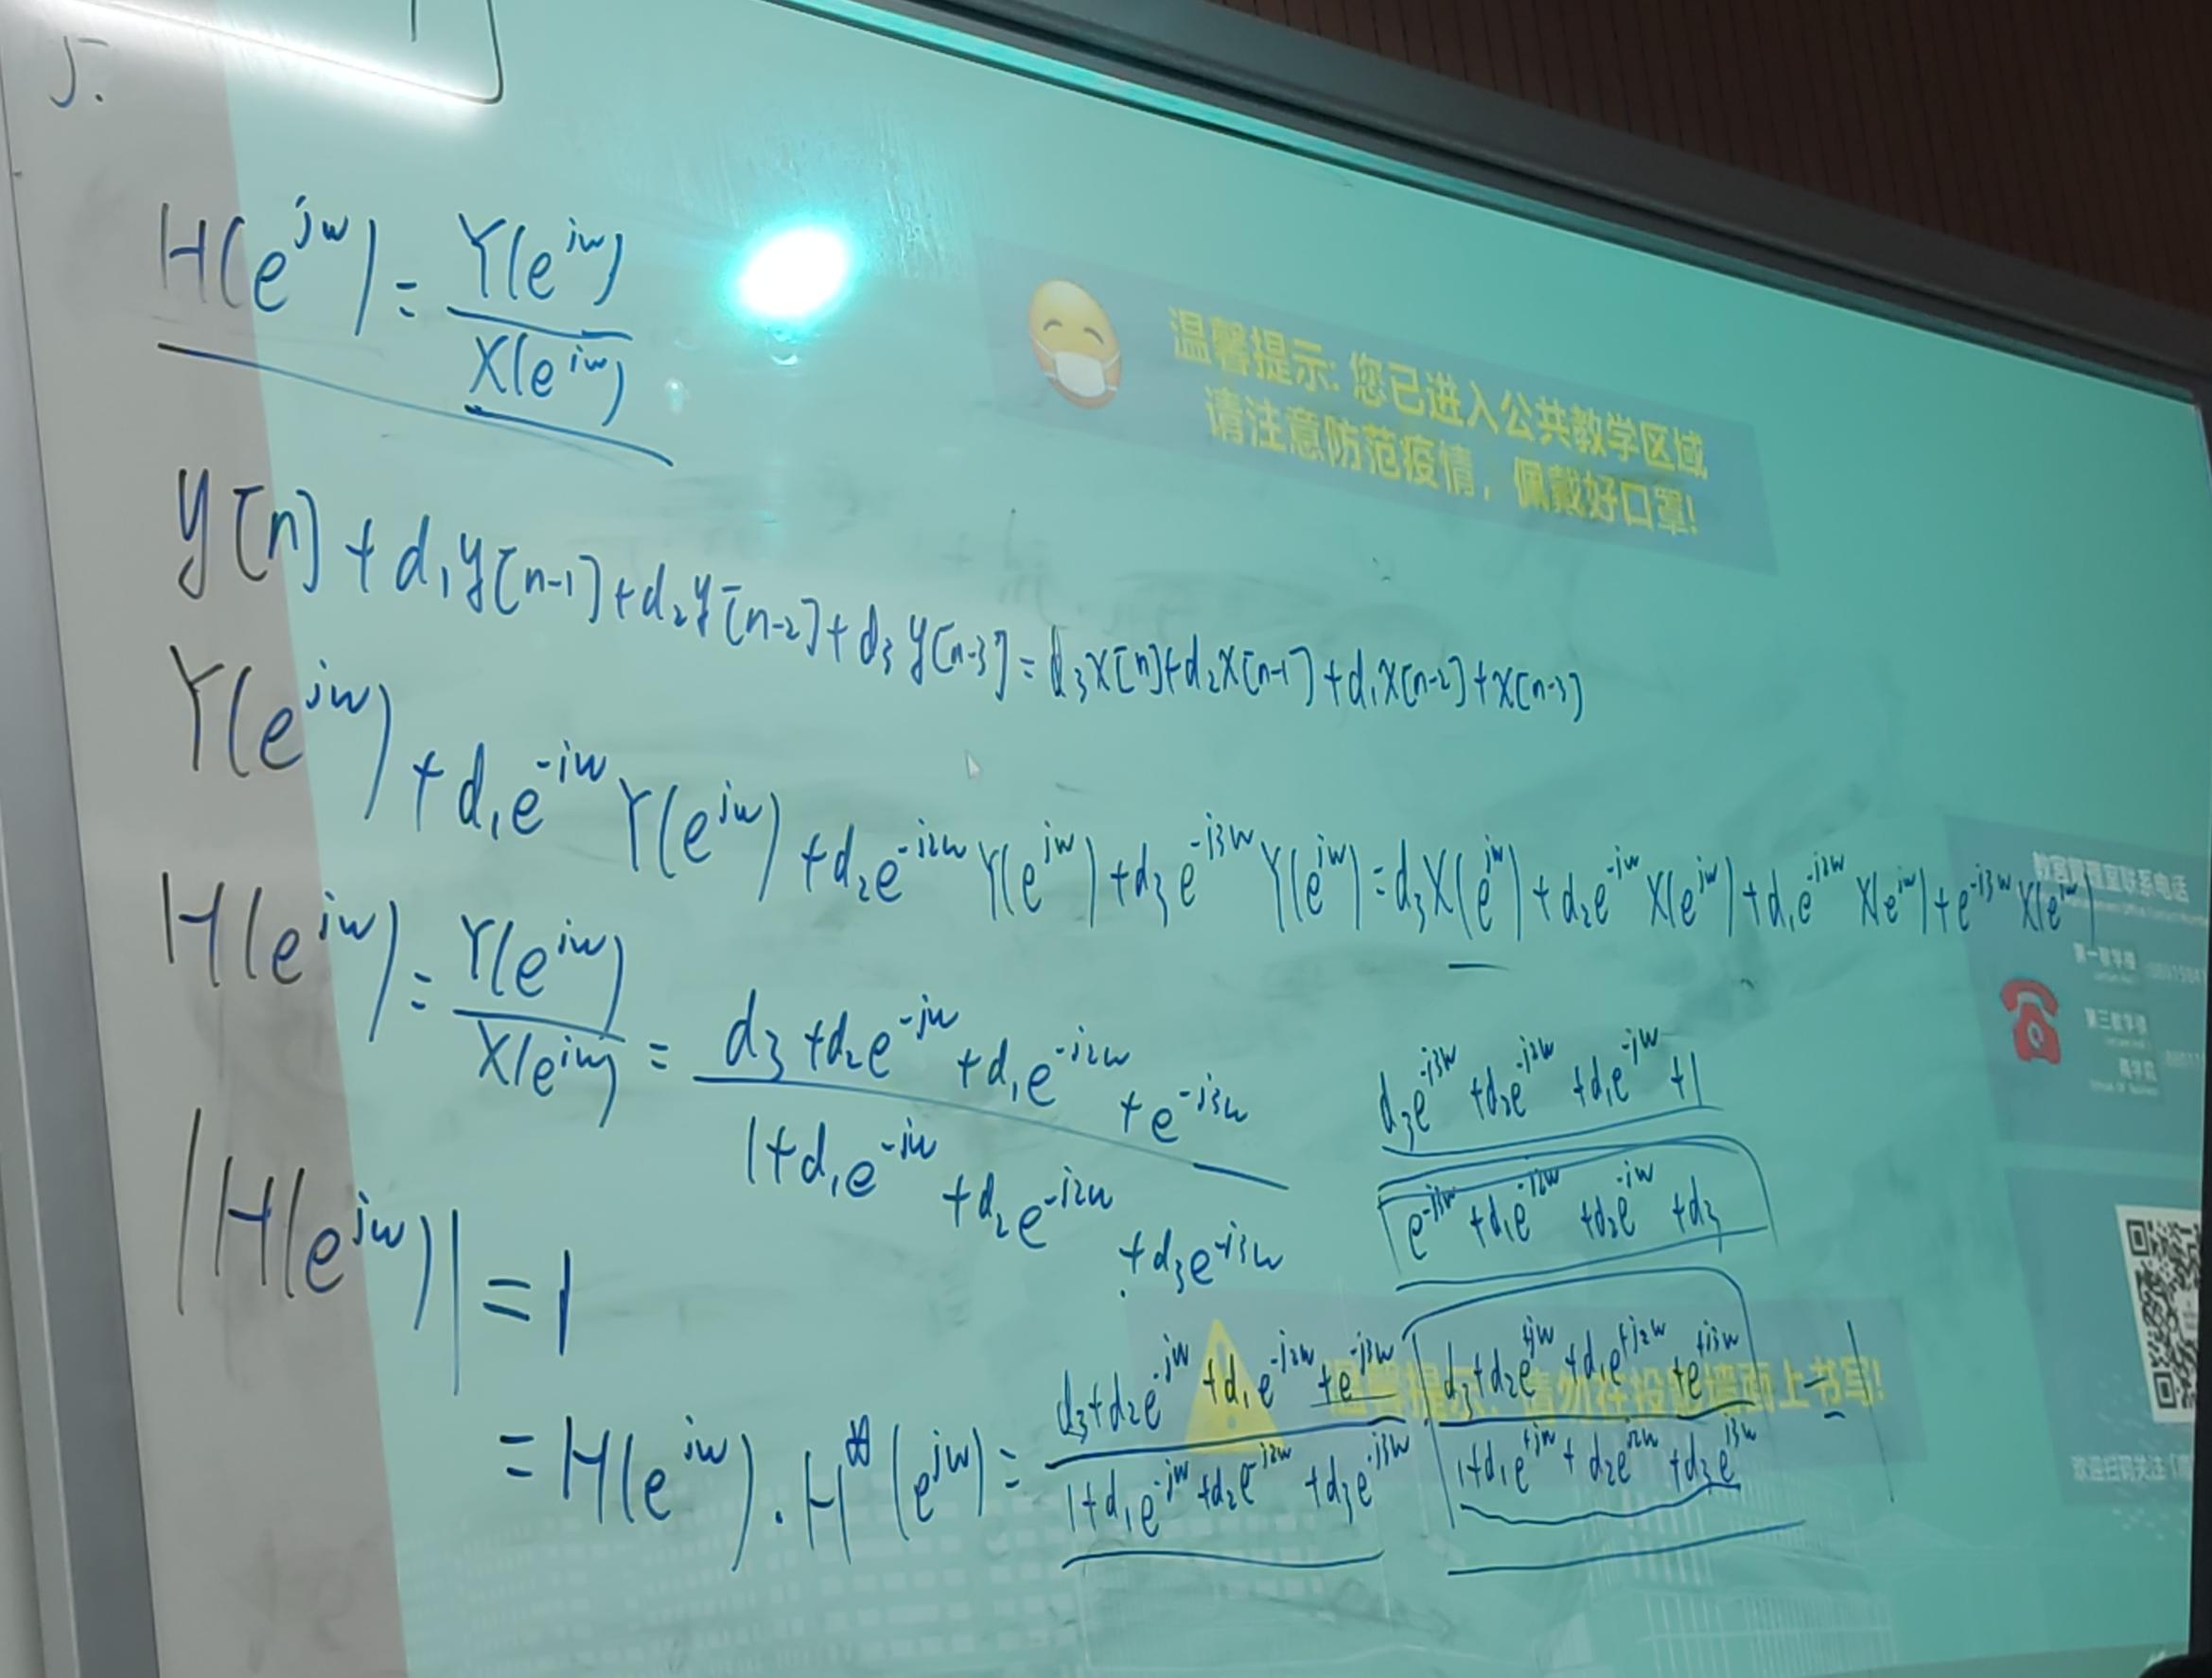 5.
H(e^{jw}) = Y(e^{jw}) / X(e^{jw})
温馨提示: 您已进入公共教学区域
请注意防范疫情，佩戴好口罩!
y[n] + d₁y[n-1] + d₂y[n-2] + d₃y[n-3] = d₃x[n] + d₂x[n-1] + d₁x[n-2] + x[n-3]
Y(e^{jw}) + d₁e^{-jw}Y(e^{jw}) + d₂e^{-j2w}Y(e^{jw}) + d₃e^{-j3w}Y(e^{jw}) = d₃X(e^{jw}) + d₂e^{-jw}X(e^{jw}) + d₁e^{-j2w}X(e^{jw}) + e^{-j3w}X(e^{jw})
H(e^{jw}) = Y(e^{jw}) / X(e^{jw}) = (d₃ + d₂e^{-jw} + d₁e^{-j2w} + e^{-j3w}) / (1 + d₁e^{-jw} + d₂e^{-j2w} + d₃e^{-j3w})
d₃e^{-j3w} + d₂e^{-j2w} + d₁e^{-jw} + 1
e^{-j3w} + d₁e^{-j2w} + d₂e^{-jw} + d₃
|H(e^{jw})| = 1
= H(e^{jw}) · H*(e^{jw}) = (d₃ + d₂e^{-jw} + d₁e^{-j2w} + e^{-j3w}) / (1 + d₁e^{-jw} + d₂e^{-j2w} + d₃e^{-j3w}) · (d₃ + d₂e^{+jw} + d₁e^{+j2w} + e^{+j3w}) / (1 + d₁e^{+jw} + d₂e^{j2w} + d₃e^{j3w}) = 1
温馨提示: 请勿在投影墙面上书写!
教室管理室联系电话
第一教学楼
第三教学楼
商学院
欢迎扫码关注